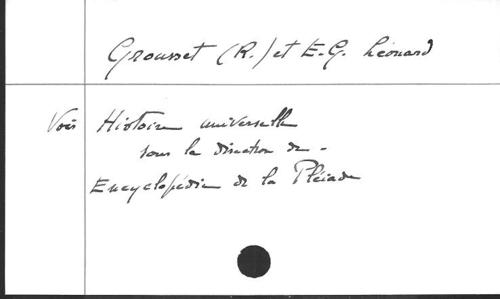 Grousset (R.) et E.-G. Léonard
Voir Histoire universelle
sous la direction de -
Encyclopédie de la Pléiade